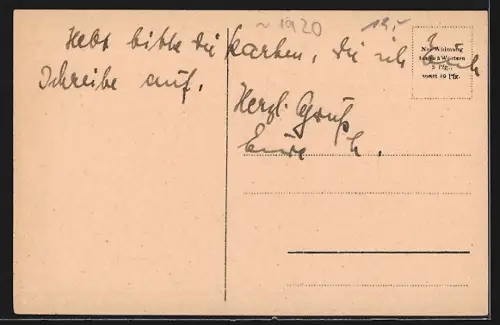 ~ 1920
12,-
Hebt bitte die Karten, die ich Euch
schreibe auf.
Herzl. Gruß
Eure h.
Nur Widmung
5 Worten
5 Pfg.,
sonst 10 Pfg.